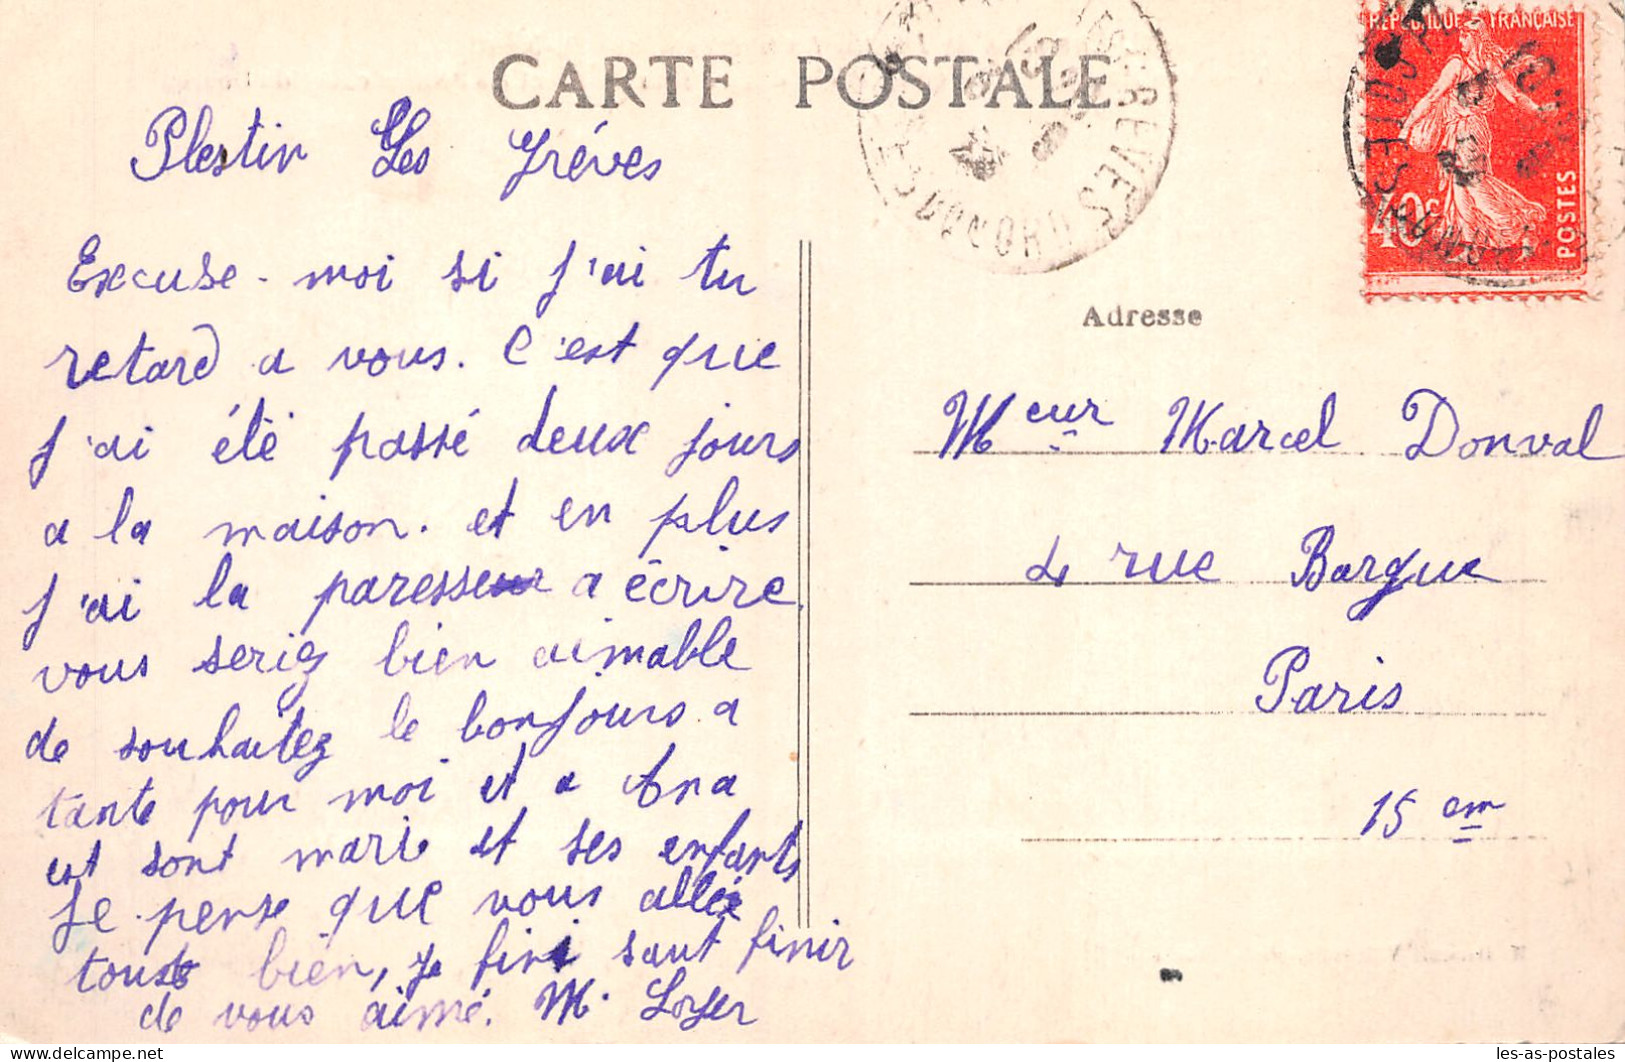 CARTE POSTALE
Plestin Les Gréves
Excuse-moi si j'ai tu
retard a vous. C'est que
j'ai été passé deux jours
a la maison. et en plus
j'ai la paresse a écrire
vous seriez bien aimable
de souhaitez le bonjours a
tante pour moi et a Ana
est sont marie et ses enfants
Je pense que vous allée
tous bien, je fini sant finir
de vous aimé. M.
RÉPUBLIQUE FRANÇAISE
40c
POSTES
Adresse
Meur Marcel Donval
4 rue Bargue
Paris
15 em
les-as-postales